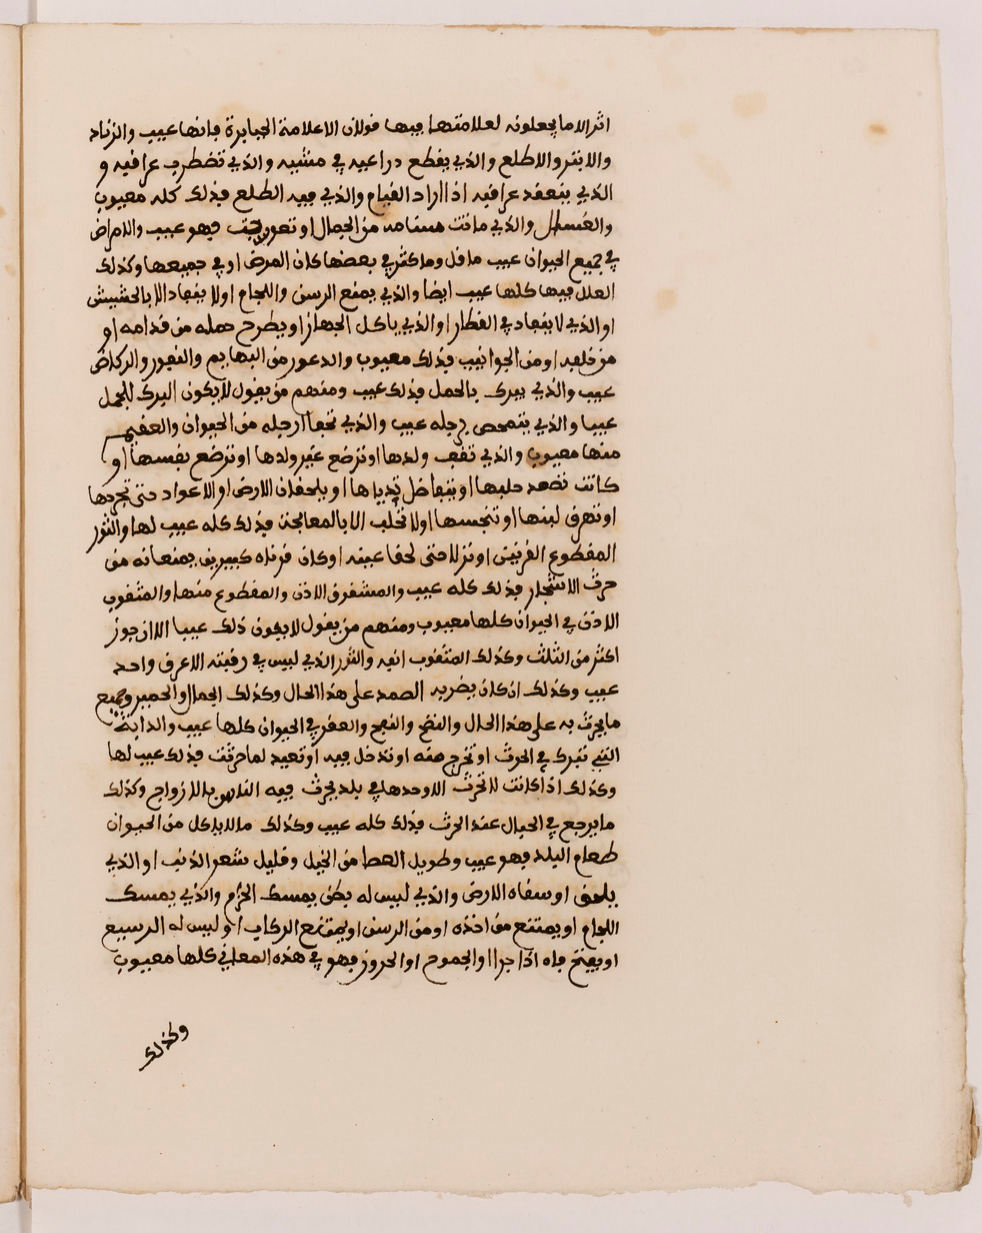 اثر الا ما يجعلونه لعلامتها ففيها قولان الا علامة الجبابرة فانها عيب والزناد
والابتر والاطلع والذي يقطع دراعيه في مشيه والذي تضطرب عراقيه و
الذي ينعقد عراقيه اذا اراد القيام والذي فيه الطلع فذلك كله معيوب
والذي ماتت من الجمال او تعورت فهو عيب والامراض
في جميع الحيوان عيب ما قل وما كثر في بعضها كان المرض او في جميعها وكذلك
العلل فيها كلها عيب ايضا والذي يمنع الرسن واللجام او لا ينقاد الا بالحشيش
او الذي لا ينقاد في القطار او الذي ياكل الجهاز او يطرح حمله من قدامه او
من خلفه او من الجوانب فذلك معيوب والدعور من البهايم والنفور والركاض
عيب والذي يبرك بالحمل فذلك عيب ومنهم من يقول لا يكون البرك للجمل
عيبا والذي يتمحص رجله عيب والذي تحفا ارجله من الحيوان والعقيم
منها معيوب والذي تقف ولدها او ترضع غير ولدها او ترضع نفسها او
كانت تصعد حلبها او يتفاضل ثدياها او يلحقان الارض او الاعواد حتى تجرحها
او تهرق لبنها او تنجسها او لا تحلب الا بالمعالجة فذلك كله عيب لها والثور
المقطوع القرنين او نزلا حتى لحقا عينه او كان قرناه كبيرين يمنعانه من
حرث الاشجار فذلك كله عيب والمشقوق الاذن والمقطوع منها والمثقوب
الاذن في الحيوان كلها معيوب ومنهم من يقول لا يكون ذلك عيبا الا ان جوز
اكثر من الثلث وكذلك المثقوب انفه والثور الذي ليس في رقبته الا عرق واحد
عيب وكذلك ان كان يضر به الصمد على هذا الحال وكذلك الجمال والحمير وجميع
ما يحرث به على هذا الحال والنفخ والنبح والعقر في الحيوان كلها عيب والدابة
التي تبرك في الحرث او تخرج منه او تدخل فيه او تعيد لما حرثت فذلك عيب لها
وكذلك اذا كانت لا تحرث الا وحدها في بلد يحرث فيه الناس بالازواج وكذلك
ما يرجع في الحبال عند الحرث فذلك كله عيب وكذلك ما لا ياكل من الحيوان
طعام البلد فهو عيب وطويل المطا من الخيل وقليل شعر الذنب او الذي
يلعق او سفاه الارض والذي ليس له بطن يمسك الحزام والذي يمسك
اللجام او يمتنع من اخذه او من الرسن او يمتنع الركاب او ليس له الرسيع
او يفتح فاه اذا جرا او الجموح او الحرور فهو في هذه المعاني كلها معيوب
وكذلك